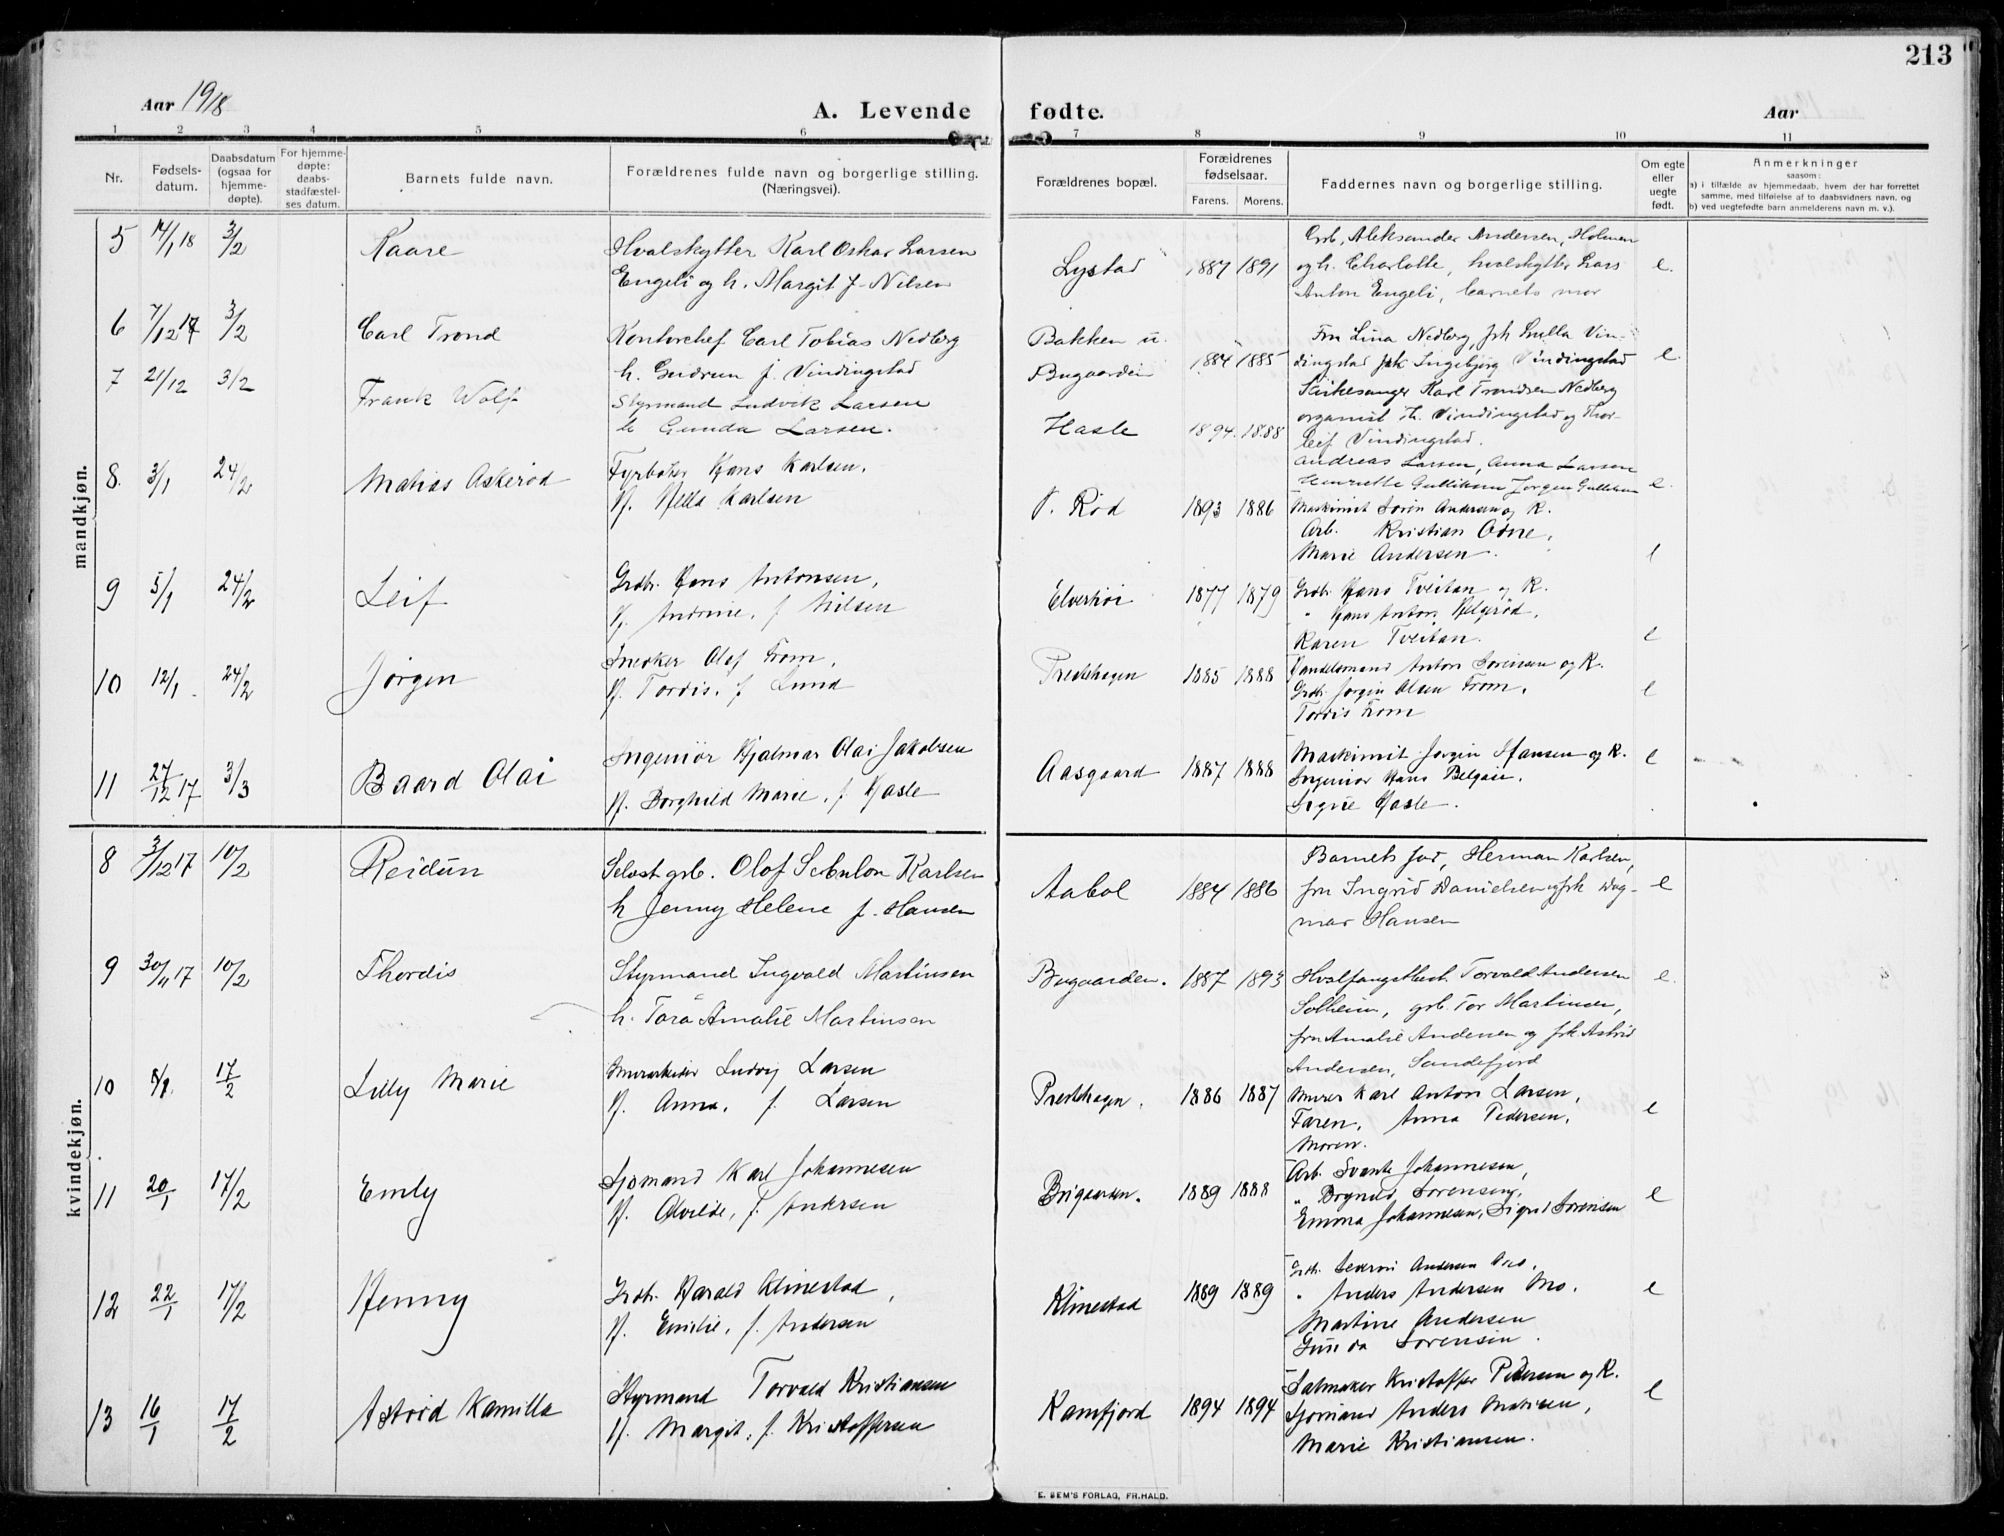 213
Aar 1918
A. Levende fødte.
Aar
1 2 3 4 5 6 7 8 9 10 11
Nr.
Fødsels-
datum.
Daabsdatum
(ogsaa for
hjemme-
døpte).
For hjemme-
døpte:
daabs-
stadfæstel-
ses datum.
Barnets fulde navn.
Forældrenes fulde navn og borgerlige stilling.
(Næringsvei).
Forældrenes bopæl.
Forældrenes
fødselsaar.
Farens. Morens.
Faddernes navn og borgerlige stilling.
Om egte
eller
uegte
født.
Anmerkninger
saasom:
a) i tilfælde av hjemmedaab, hvem der har forrettet
samme, med tilføielse af to daabsvidners navn, og
b) ved uegtefødte barn anmelderens navn m. v.).
mandkjøn.
5 14/1 18 3/2 Kaare
Hvalskytter Karl Oskar Larsen
Engeli og h. Margit f. Nilsen
Lystad 1887 1891
Grb. Aleksander Andersen, Holmen
og h. Charlotte, hvalskytter Lars
Anton Engeli, barnets mor
e.
6 7/12 17 3/2 Carl Trond
Kontorchef Carl Tobias Nedberg
h. Gudrun f. Vindingstad
Bakken u.
Bugaarden 1884 1885
Fru Lina Nedberg, frk Vin-
dingstad frk Ingebjørg Vindingstad
Kirkesanger Karl Trondsen Nedberg
organist Vindingstad og Thor-
leif Vindingstad.
e.
7 21/12 3/2 Frank Wolf
Styrmand Ludvik Larsen
h. Gunda Larsen.
Hasle 1894. 1888
Andreas Larsen, Anna Larsen
Henriette Gulliksen Jørgen Gulliksen
e.
8. 3/1 24/2 Matias Askerød
Fyrbøter Hans Karlsen.
H. Hella Karlsen
V. Rød 1893 1886
Maskinist Søren Andersen og K.
Arb. Kristian Odne,
Marie Andersen.
e
9 5/1 24/2 Leif
Grdbr. Hans Antonsen,
H. Andrine, f. Nilsen
Elverhøi 1877 1879
Grdbr. Hans Tveitan og K.
" Hans Anton. Helgerød,
Karen Tveitan.
e
10 12/1. 24/2 Jørgen
Snedker Olaf From,
H. Tordis, f. Lund
Prestehagen 1885 1888
Handelsmand Anton Sørensen og K.
Grdbr. Jørgen Olsen From,
Tordis From
e
11 27/12 17 3/3 Baard Olai
Ingeniør Hjalmar Olai Jakobsen
H. Borghild Marie, f. Hasle
Aasgaard 1887 1888
Maskinist Jørgen Hansen og K.
Ingeniør Hans Belgau,
Signe Hasle.
e
kvindekjøn.
8 3/12 17 10/2 Reidun
Selvst grb. Olof Sebulon Karlsen
h Jenny Helene f. Hansen
Aabol 1884 1886
Barnets far, Herman Karlsen,
fru Ingrid Danielsen og frk Dag-
mar Hansen
e
9 30/11 17 10/2 Thordis
Styrmand Ingvald Martinsen
h. Tora Amalie Martinsen
Bugaarden. 1887 1893
Hvalfangstbest. Torvald Andersen
Solheim, grb. Tor Martinsen,
fru Amalie Andersen og frk Astrid
Andersen, Sandefjord
e.
10 8/1. 17/2 Lilly Marie
Murarbeider Ludvig Larsen
H. Anna, f. Larsen
Prestehagen. 1886 1887
Murer Karl Anton Larsen,
Faren, Anna Pedersen,
Moren.
e
11 20/1 17/2 Emly
Sjømand Karl Johannesen
H. Alvilde, f. Andersen
Brigaarden. 1889 1888
Arb. Svante Johannesen,
" Brynild Sørensen,
Emma Johannesen, Sigrid Sørensen
e
12 22/1 17/2 Henny
Grdbr. Harald Klinestad,
H. Emilie, f. Andersen
Klinestad 1889 1889
Grdb. Severin Andersen Mo,
" Anders Andersen Mo.
Martine Andersen
Gunda Sørensen.
e
13 16/1 17/2 Astrid Kamilla
Styrmand Torvald Kristiansen
H. Margit, f. Kristoffersen
Kamfjord 1894 1894
Salmaker Kristoffer Pedersen og K.
Sjømand Anders Mathisen,
Marie Kristiansen.
e
E. SEM'S FORLAG, FR.HALD.